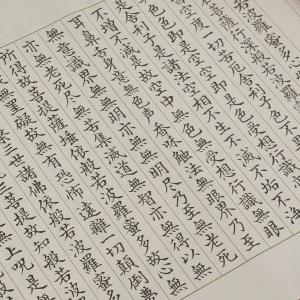 若波羅蜜多
度一切苦厄舍利子色
色即是空空即是色受想行識
是舍利子是諸法空相不生不滅不垢不
不增不減是故空中無色無受想行識無眼
耳鼻舌身意無色聲香味觸法無眼界乃至
無意識界無無明亦無無明盡乃至無老死
亦無老死盡無苦集滅道無智亦無得以無
所得故菩提薩埵依般若波羅蜜多故心無
罣礙故無有恐怖遠離一切顛倒夢
三世諸佛依般若波羅蜜多故
三菩提故知般若波
無上咒是